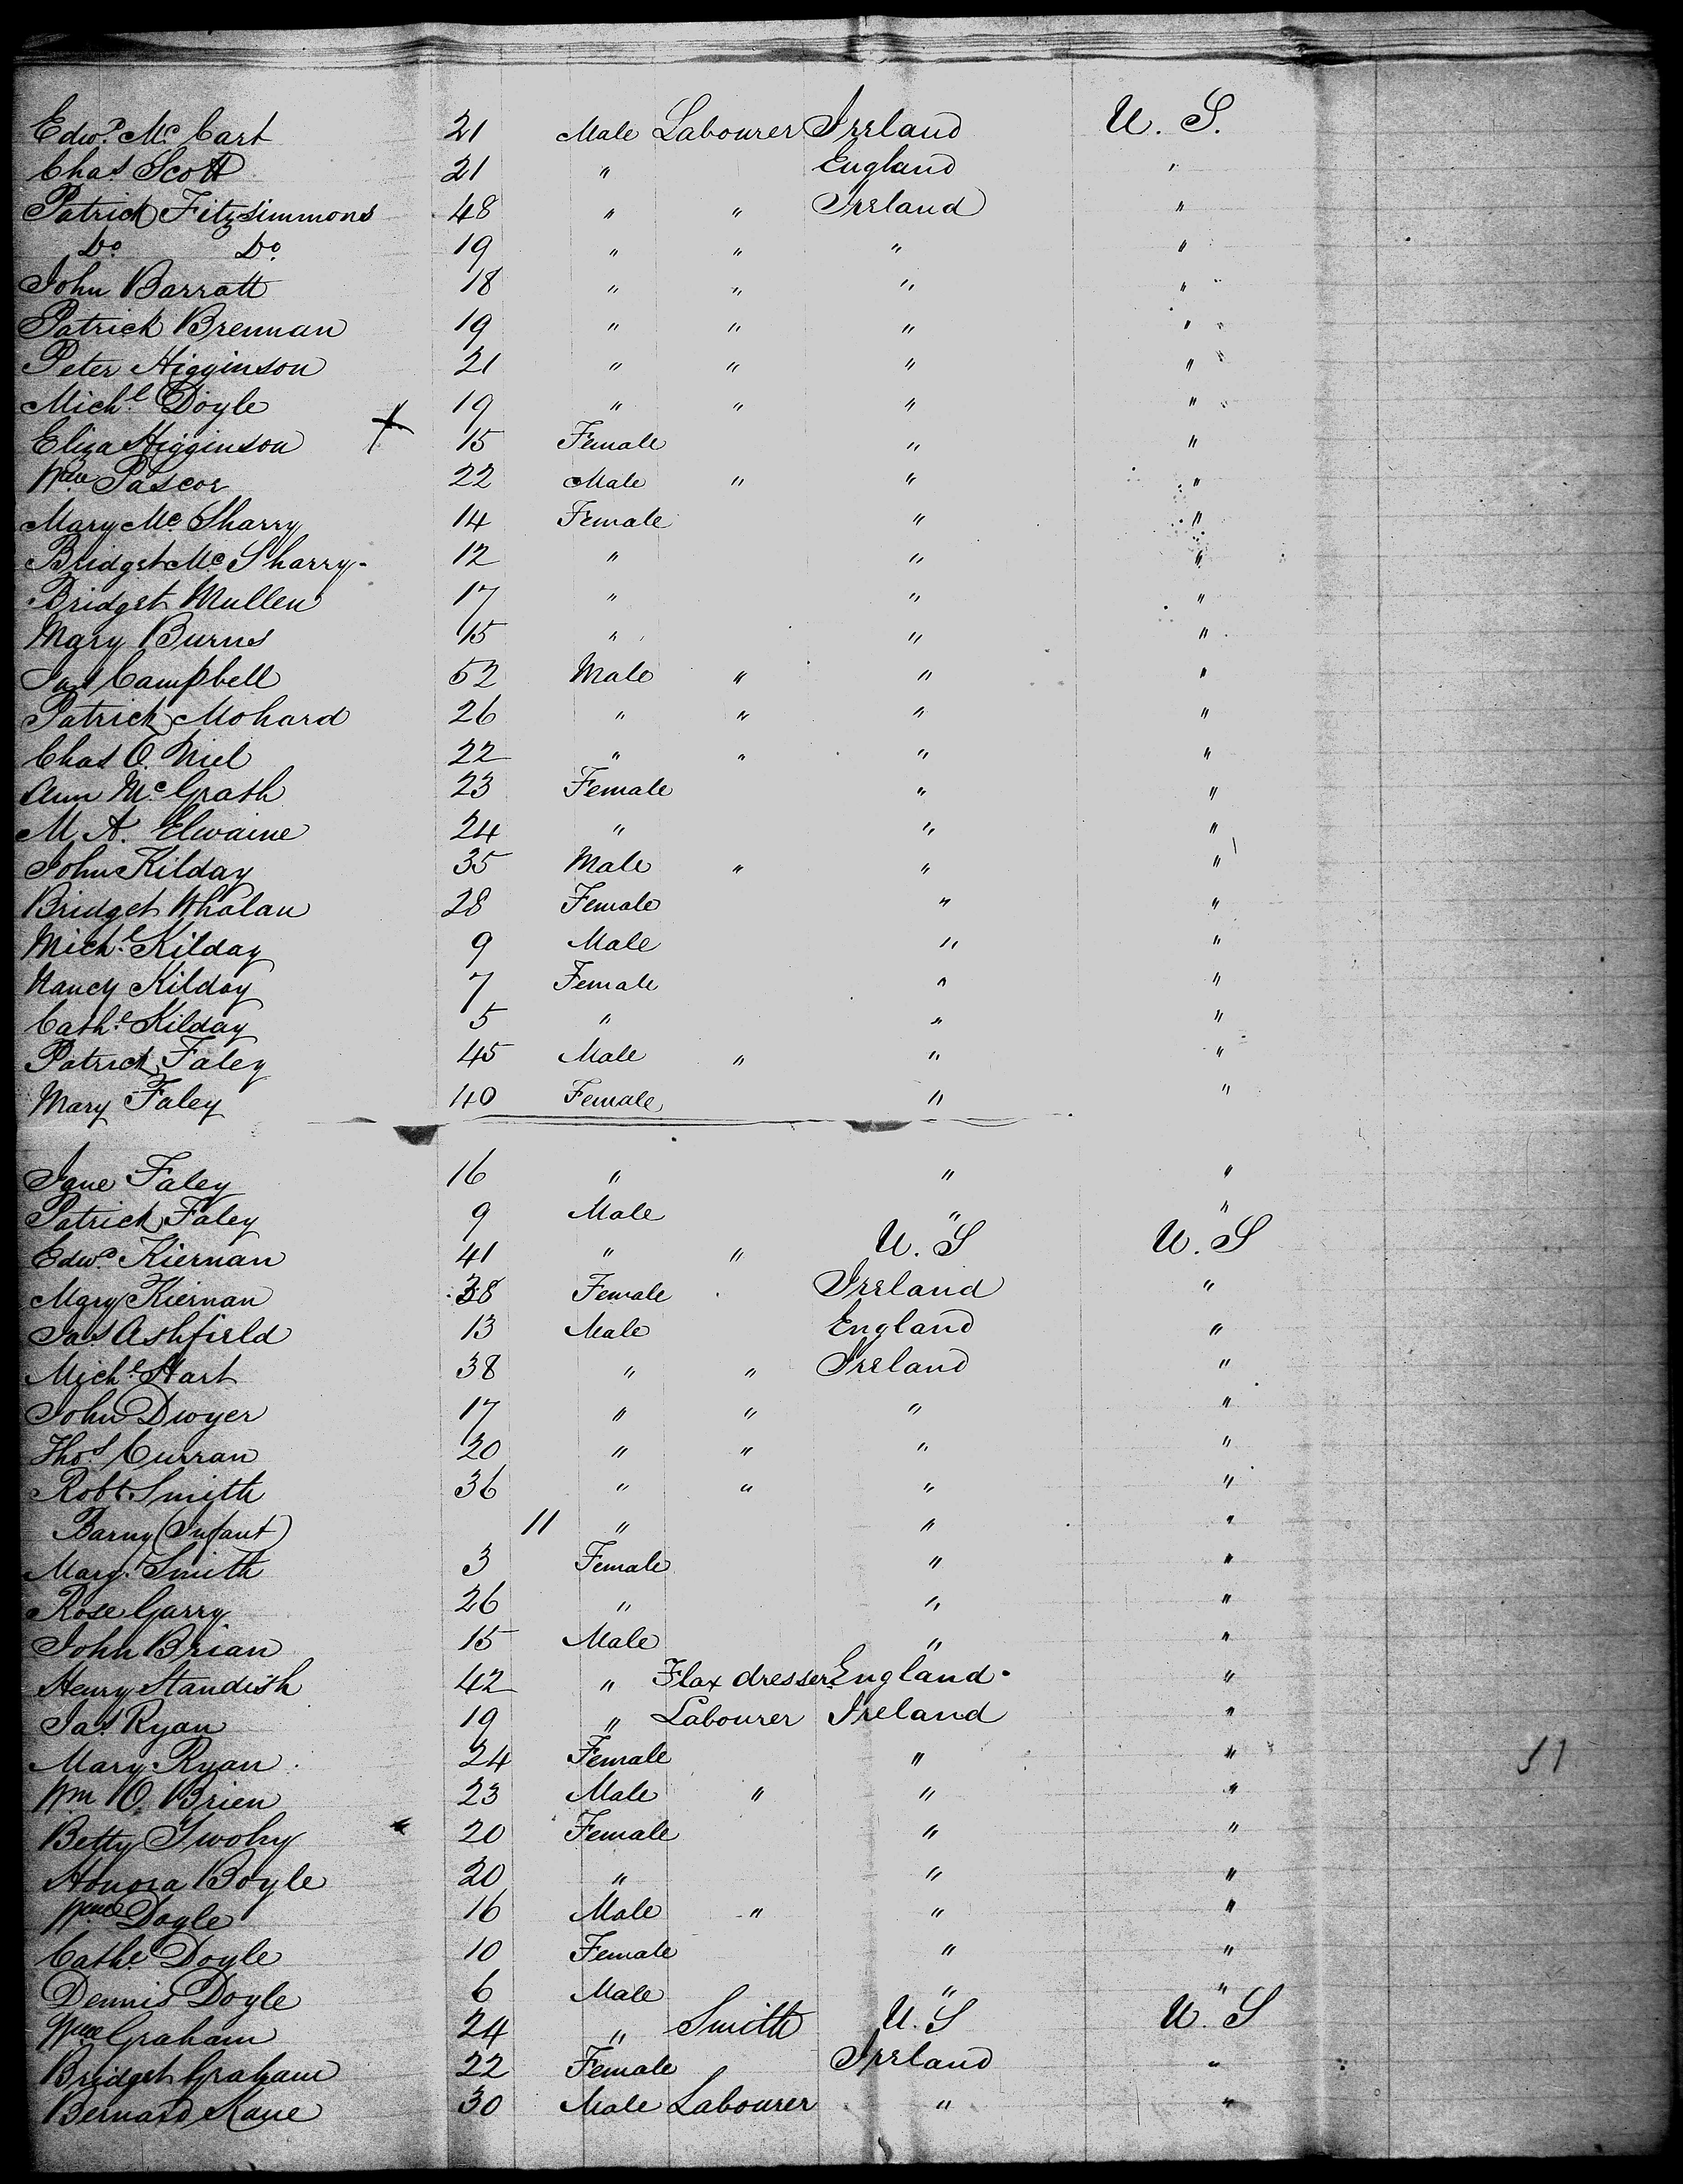 Edwd. Mc. Cart 21 Male Labourer Ireland U. S.
Chas. Scott 21 " England "
Patrick Fitzsimmons 48 " " Ireland "
Do. Do. 19 " " " "
John Barratt 18 " " " "
Patrick Brennan 19 " " " "
Peter Higginson 21 " " " "
Michl. Doyle 19 " " " "
Eliza Higginson + 15 Female " "
Wm. Pascor 22 Male " " "
Mary Mc. Sharry 14 Female " "
Bridget Mc. Sharry 12 " " "
Bridget Mullen 17 " " "
Mary Burns 15 " " "
Jas Campbell 52 Male " " "
Patrick Mohard 26 " " " "
Chas O. Niel 22 " " " "
Ann Mc. Grath 23 Female " "
M. A. Elwaine 24 " " "
John Kilday 35 Male " " "
Bridget Whalan 28 Female " "
Michl. Kilday 9 Male " "
Nancy Kilday 7 Female " "
Cathe. Kilday 5 " " "
Patrick Faley 45 Male " " "
Mary Faley 40 Female " "
Jane Faley 16 " " "
Patrick Faley 9 Male " "
Edwd. Kiernan 41 " " U. S U. S
Mary Kiernan 38 Female Ireland "
Jas. Ashfield 13 Male England "
Michl. Hart 38 " " Ireland "
John Dwyer 17 " " " "
Thos. Curran 20 " " " "
Robt. Smith 36 " " " "
Barny (Infant) 11 " " "
Marg. Smith 3 Female " "
Rose Garry 26 " " "
John Brian 15 Male " "
Henry Standish 42 " Flax dresser England "
Jas. Ryan 19 " Labourer Ireland "
Mary Ryan 24 Female " "
Wm O. Brien 23 Male " " "
Betty Twohy 20 Female " "
Honora Boyle 20 " " "
Wm. Doyle 16 Male " " "
Cathe. Doyle 10 Female " "
Dennis Doyle 6 Male " "
Wm. Graham 24 " Smith U. S U. S
Bridget Graham 22 Female Ireland "
Bernard Kane 30 Male Labourer " "